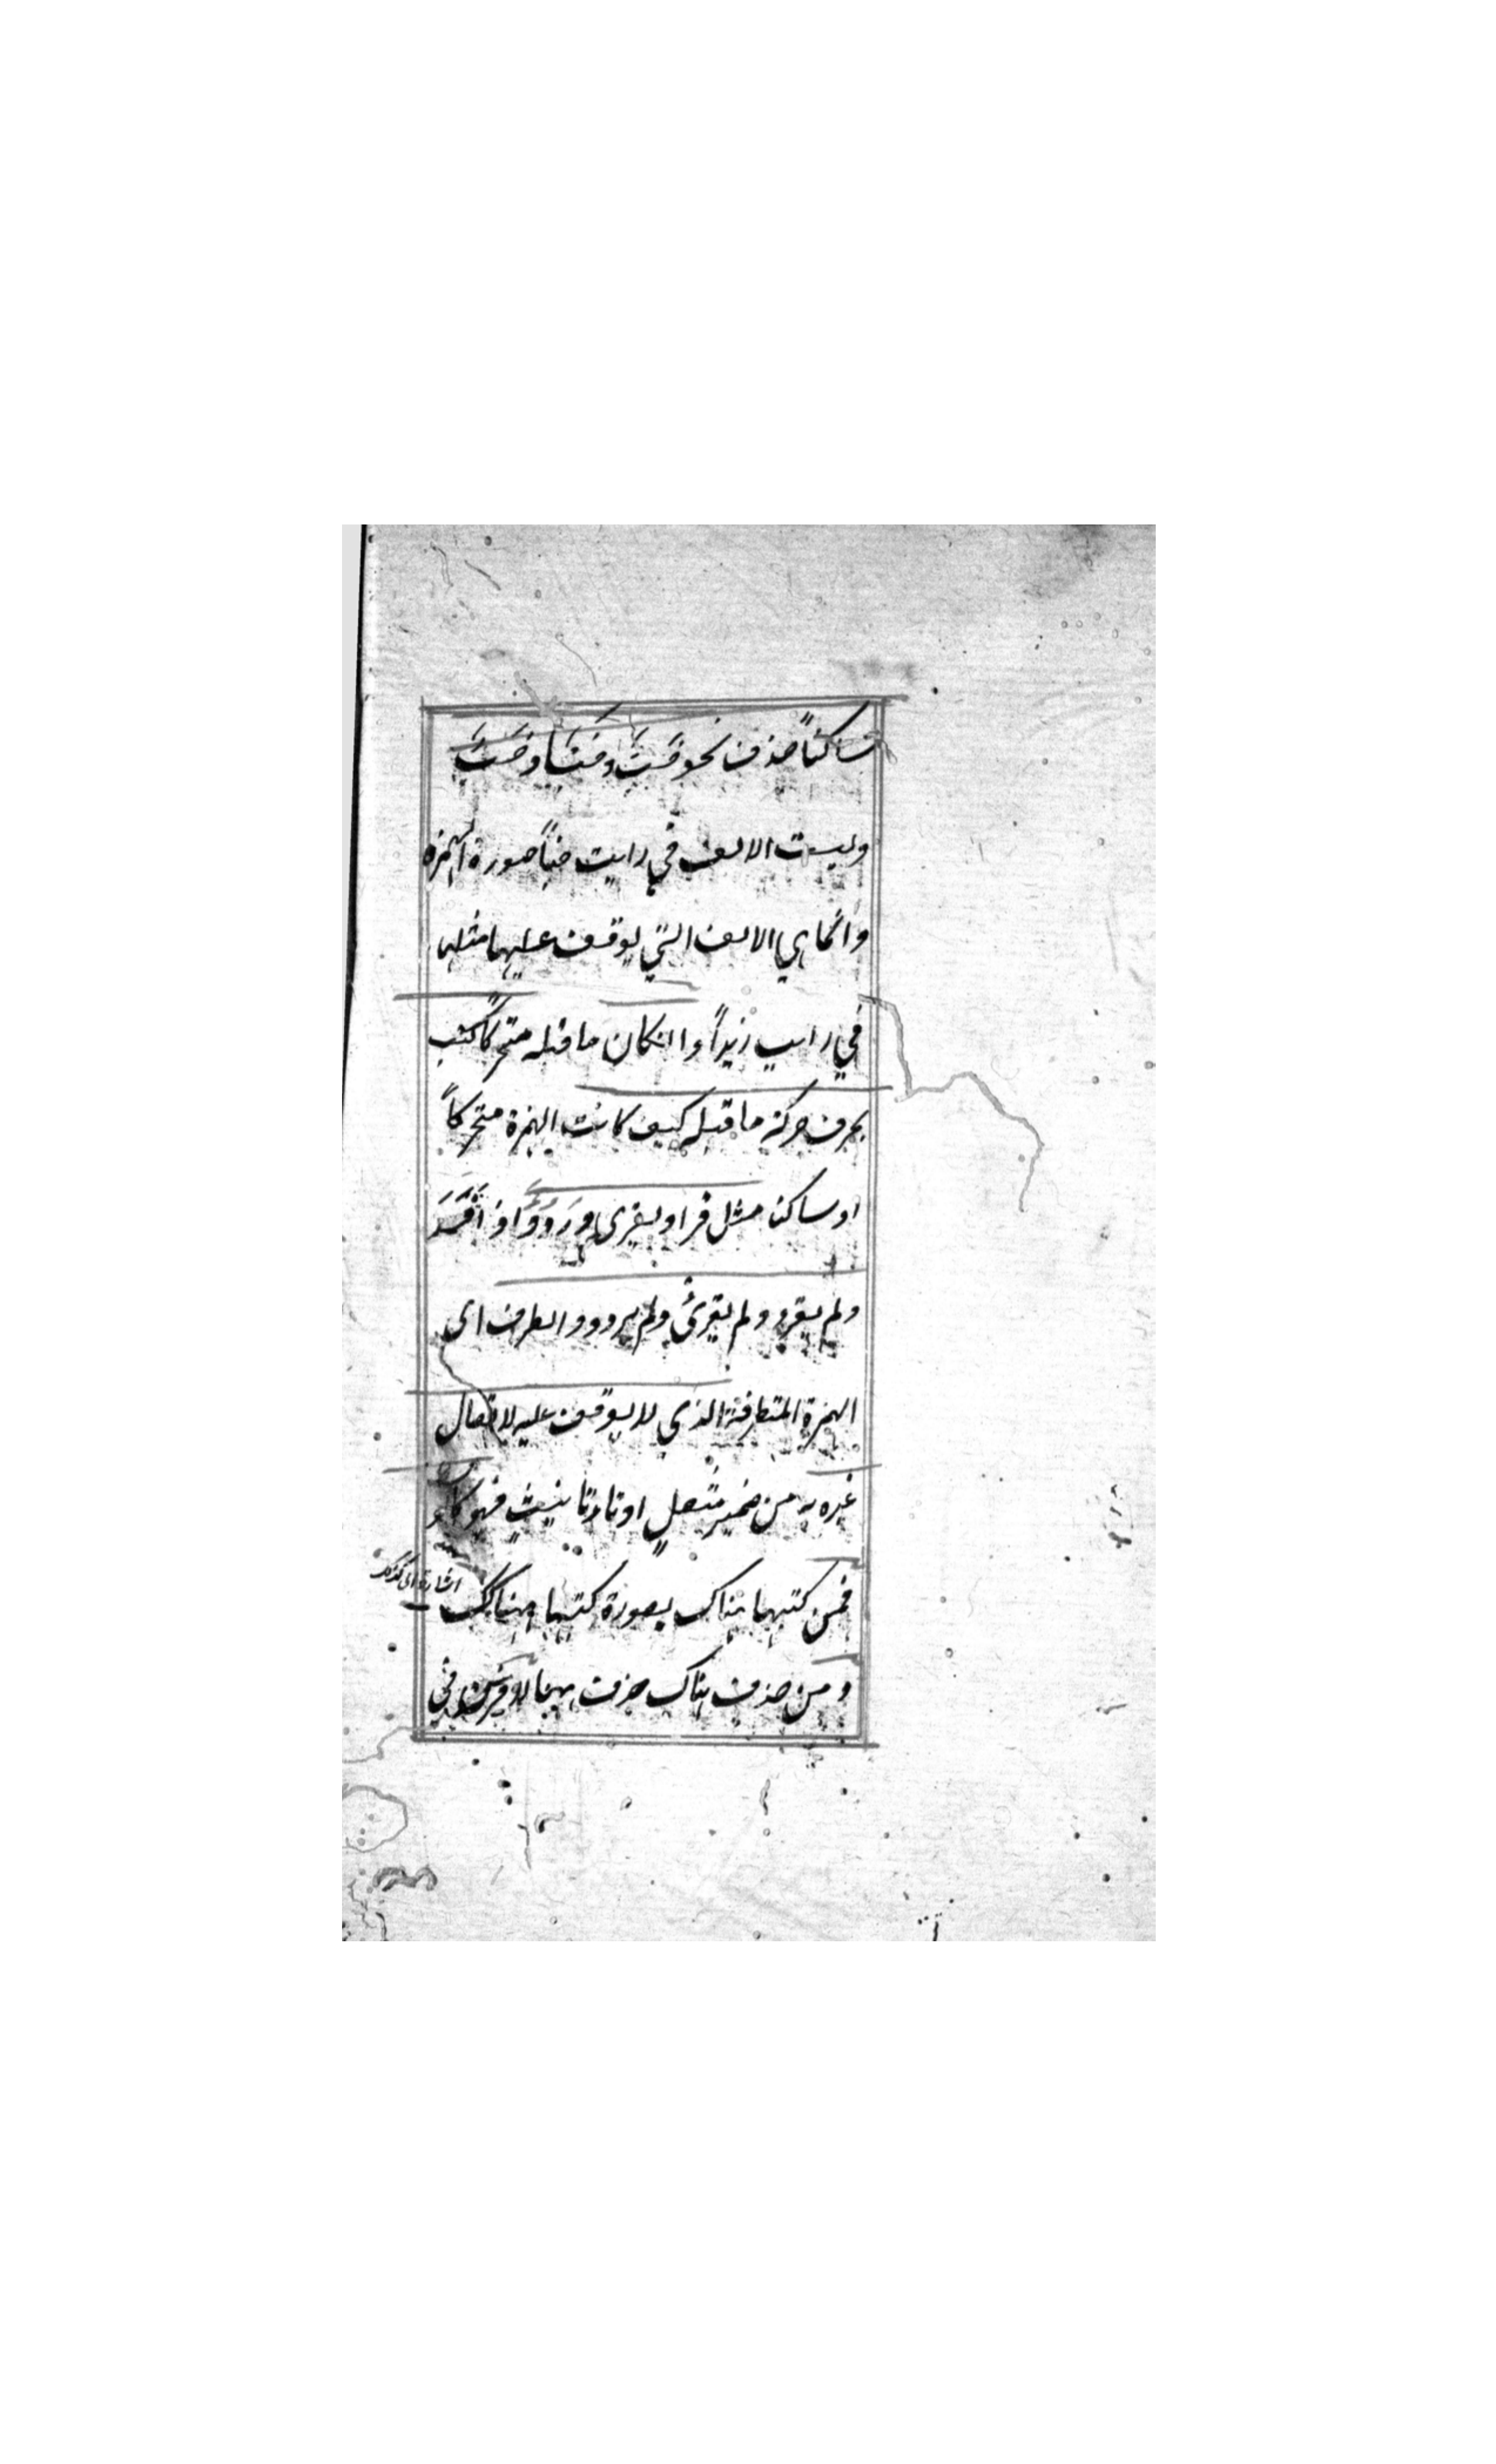 ساكناً حذف نحو خَبٌ وخَبئا وخَبٍ
وليست الالف في رايت خباً صورة الهمزة
وانما هي الالف التي يوقف عليها مثلها
في رايت زيداً وا انكان ما قبله متحركاً كتب
بحرف حركة ما قبله كيف كانت الهمزة متحركاً
او ساكنا مثل قرا ويقرى و رَدُؤَ
ولم يقرء ولم يقرئ ولم يردوو والطرف اى
الهمزة المتطرفة الذي لا يوقف عليه لاتصال
غيره به من ضمير متصل او تاء تانيث فهو كا
فمن كتبها هناك بصورة كتبها هناك
اشارة الى كذلك
ومن حذف هناك حذف ههنا في